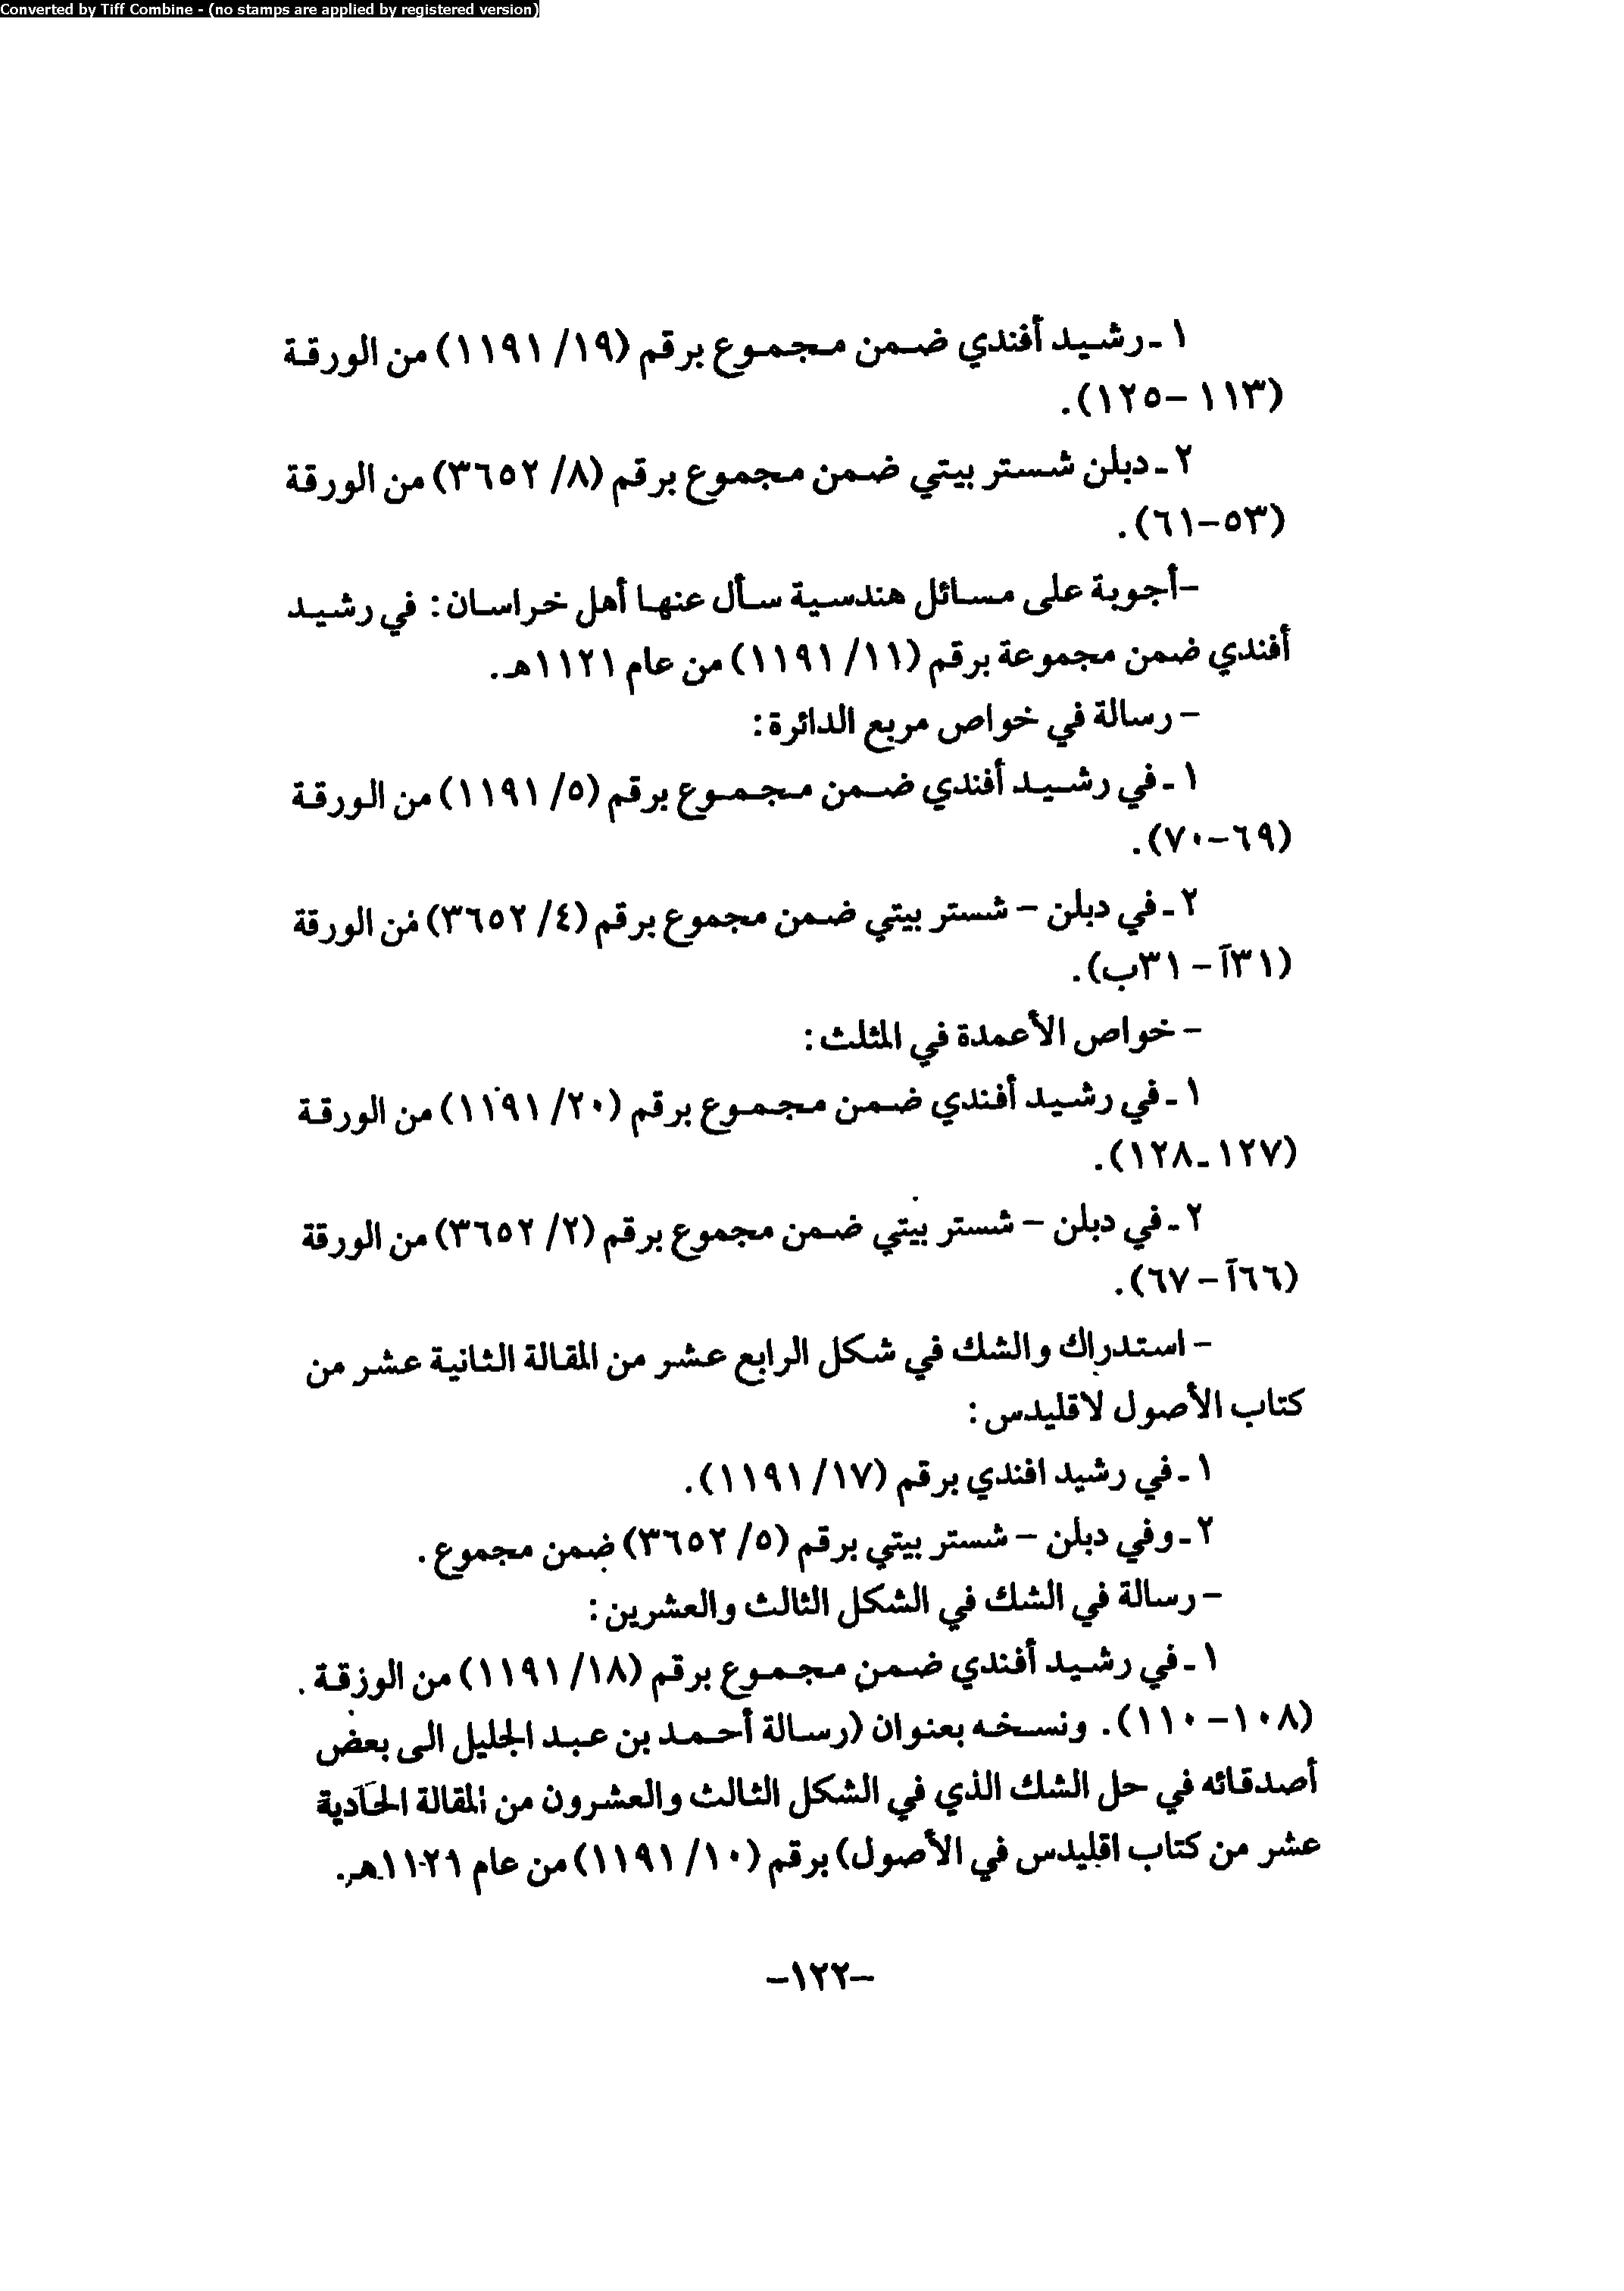 Converted by Tiff Combine - (no stamps are applied by registered version)
١ ـ رشيد أفندي ضمن مجموع برقم (١٩/ ١١٩١) من الورقة
(١١٣ – ١٢٥).
٢ ـ دبلن شستر بيتي ضمن مجموع برقم (٨/ ٣٦٥٢) من الورقة
(٥٣–٦١).
–أجوبة على مسائل هندسية سأل عنها أهل خراسان: في رشيد
أفندي ضمن مجموعة برقم (١١/ ١١٩١) من عام ١١٢١هـ.
– رسالة في خواص مربع الدائرة:
١ ـ في رشيد أفندي ضمن مجموع برقم (٥/ ١١٩١) من الورقة
(٦٩–٧٠).
٢ ـ في دبلن – شستر بيتي ضمن مجموع برقم (٤/ ٣٦٥٢) من الورقة
(٣١آ – ٣١ب).
– خواص الأعمدة في المثلث:
١ ـ في رشيد أفندي ضمن مجموع برقم (٢٠/ ١١٩١) من الورقة
(١٢٧ـ١٢٨).
٢ ـ في دبلن – شستر بيتي ضمن مجموع برقم (٢/ ٣٦٥٢) من الورقة
(٦٦آ – ٦٧).
– استدراك والشك في شكل الرابع عشر من المقالة الثانية عشر من
كتاب الأصول لاقليدس:
١ ـ في رشيد افندي برقم (١٧/ ١١٩١).
٢ ـ وفي دبلن – شستر بيتي برقم (٥/ ٣٦٥٢) ضمن مجموع.
– رسالة في الشك في الشكل الثالث والعشرين:
١ ـ في رشيد أفندي ضمن مجموع برقم (١٨/ ١١٩١) من الورقة.
(١٠٨–١١٠). ونسخه بعنوان (رسالة أحمد بن عبد الجليل الى بعض
أصدقائه في حل الشك الذي في الشكل الثالث والعشرون من المقالة الحادية
عشر من كتاب اقليدس في الأصول) برقم (١٠/ ١١٩١) من عام هـ.
–١٢٢–